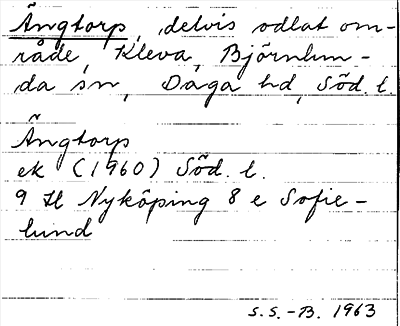 Ängtorp, delvis odlat om-
råde, Kleva, Björnlun-
da sn, Daga hd, Söd. l.
Ängtorp
ek (1960) Söd. l.
9 H Nyköping 8 e Sofie-
lund
S.S.-B. 1963